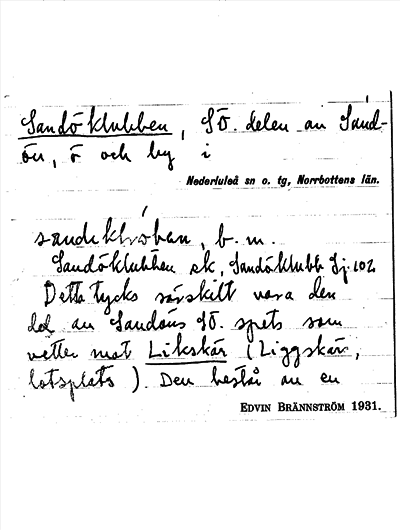 Sandöklubben, SÖ. delen av Sand-
ön, ö och by i
Nederluleå sn o. tg, Norrbottens län.
b. m.
Sandöklubben sk, Sandöklubb Sj. 102
Detta tycks särskilt vara den
del av Sandöns SÖ. spets som
vetter mot Likskär (Liggskär,
lotsplats). Den består av en
EDVIN BRÄNNSTRÖM 1931.